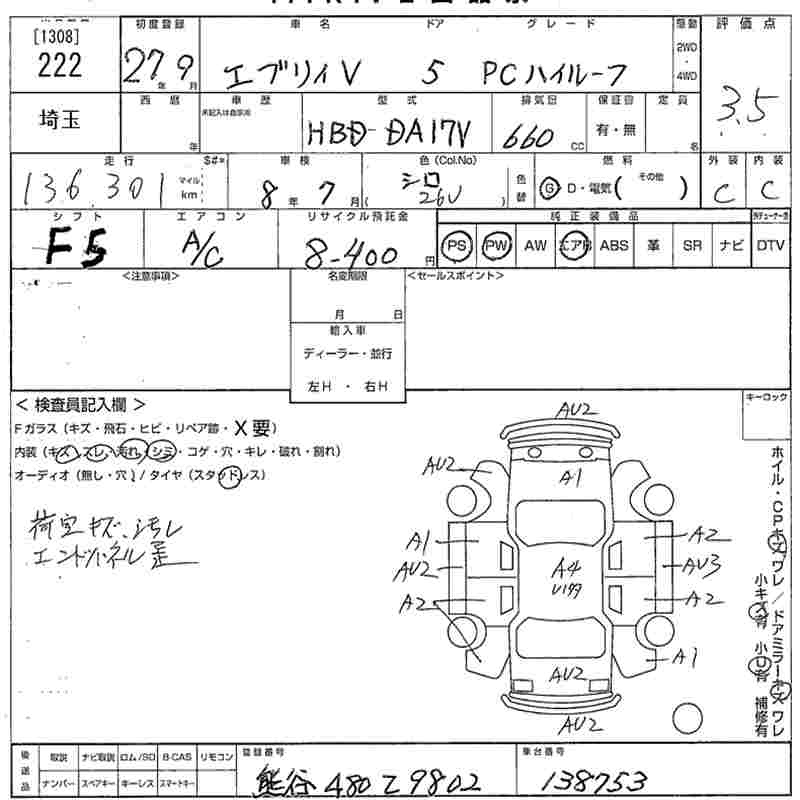 [1308]
222
埼玉
初度登録
27年9月
車名
エブリィV
ドア
5
グレード
PCハイルーフ
駆動
2WD
・
4WD
評価点
3.5
西暦
年
車歴
未記入は自家用
型式
HBD-DA17V
排気量
660 CC
保証書
有・無
定員
名
走行
136,301
マイル
km
S#*
車検
8年7月
色(Col.No)
シロ
( 26U )
色替
燃料
G D・電気( その他 )
外装
C
内装
C
シフト
F5
エアコン
A/C
リサイクル預託金
8-400円
純正装備品
PS PW AW エアB ABS 革 SR ナビ DTV
<注意事項>
名変期限
月 日
<セールスポイント>
輸入車
ディーラー・並行
左H ・ 右H
< 検査員記入欄 >
Fガラス(キズ・飛石・ヒビ・リペア跡・X要)
内装(キズ・スレ・汚れ・シミ・コゲ・穴・キレ・破れ・割れ)
オーディオ(無し・穴)/タイヤ(スタッドレス)
荷室キズ、汚レ
キーロック
ホイル・CPキズワレ/ドアミラーキズワレ
小キズ有 小U有 補修有
AU2
AU2
A1
A1
A2
AU2
AU3
A4
A2
A2
A1
AU2
AU2
後送品
取説 ナビ取説 ロム/SD B-CAS リモコン
ナンバー スペアキー キーレス スマートキー
登録番号
熊谷 480 て 9802
車台番号
138753